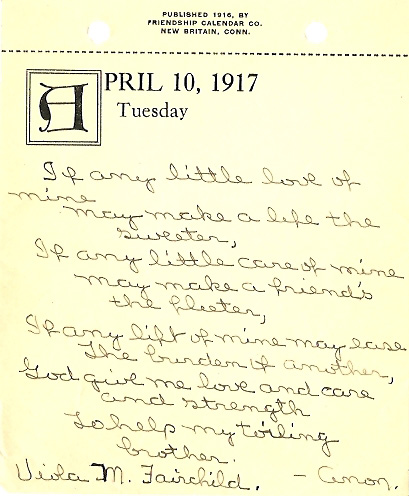 PUBLISHED 1916, BY
FRIENDSHIP CALENDAR CO.
NEW BRITAIN, CONN.
APRIL 10, 1917
Tuesday
If any little love of
mine
may make a life the
sweeter,
If any little care of mine
may make a friend's
the fleeter,
If any lift of mine may ease
The burden of another,
God give me love and care
and strength
To help my toiling
brother.
Viola M. Fairchild. - Anon.